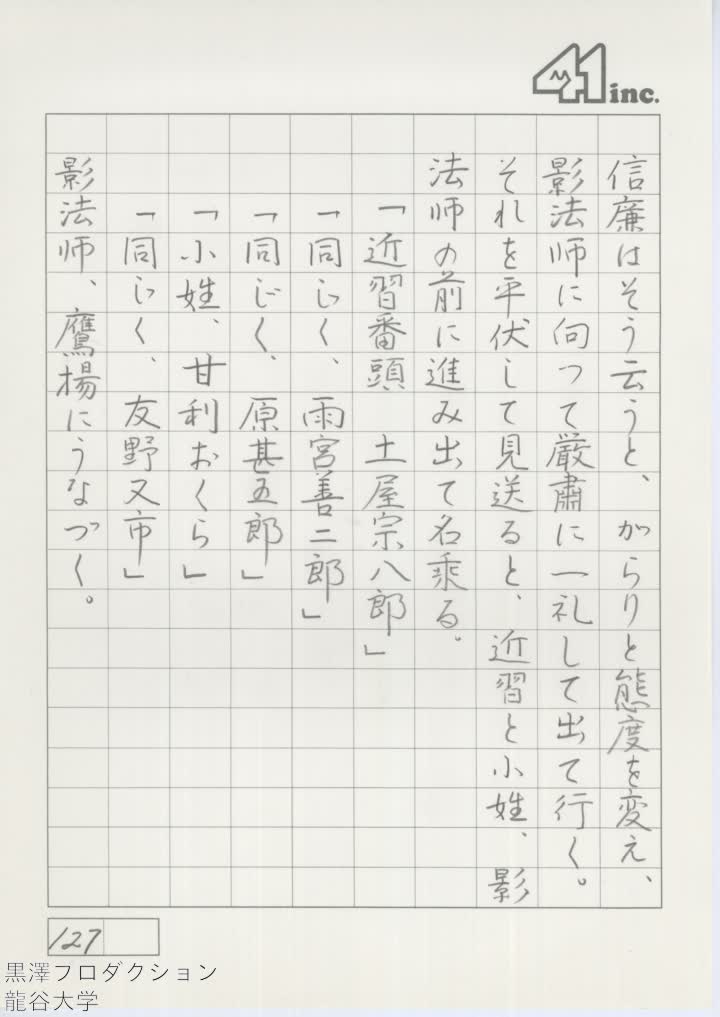 41 inc.
信廉はそう云うと、がらりと態度を変え、
影法師に向って厳粛に一礼して出て行く。
それを平伏して見送ると、近習と小姓、影
法師の前に進み出て名乗る。
「近習番頭　土屋宗八郎」
「同じく、雨宮善二郎」
「同じく、原甚五郎」
「小姓、甘利おくら」
「同じく、友野又市」
影法師、鷹揚にうなづく。
127
黒澤フロダクション
龍谷大学